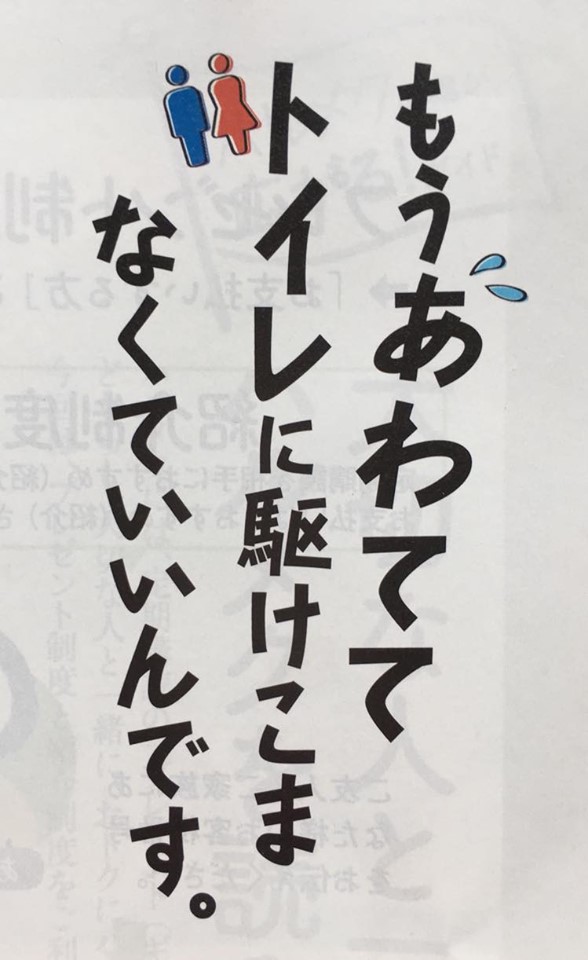 もうあわてて
トイレに駆けこま
なくていいんです。